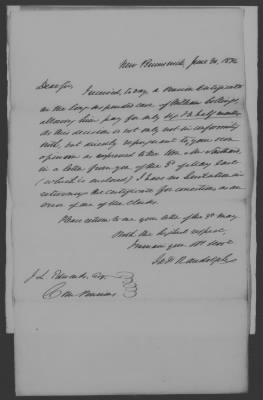 New Brunswick, June 30, 18
Dear Sir,
I received, to day a Pension Certificate
in the long suspended case of William
allowing him pay for only six & a half months
as this decision is not only not in conformity
with, but directly repugnant to, your own
opinion as expressed to the Hon
in a letter from you of the 8th of May last
(which is enclosed) I have no hesitation in
returning the certificate for correction as an
error of one of the Clerks.
Please return to me your letter of the 8th May
With the highest respect,
I remain your obt servt
Jas F Randolph
J. L. Edwards, Esq.
Com Pensions